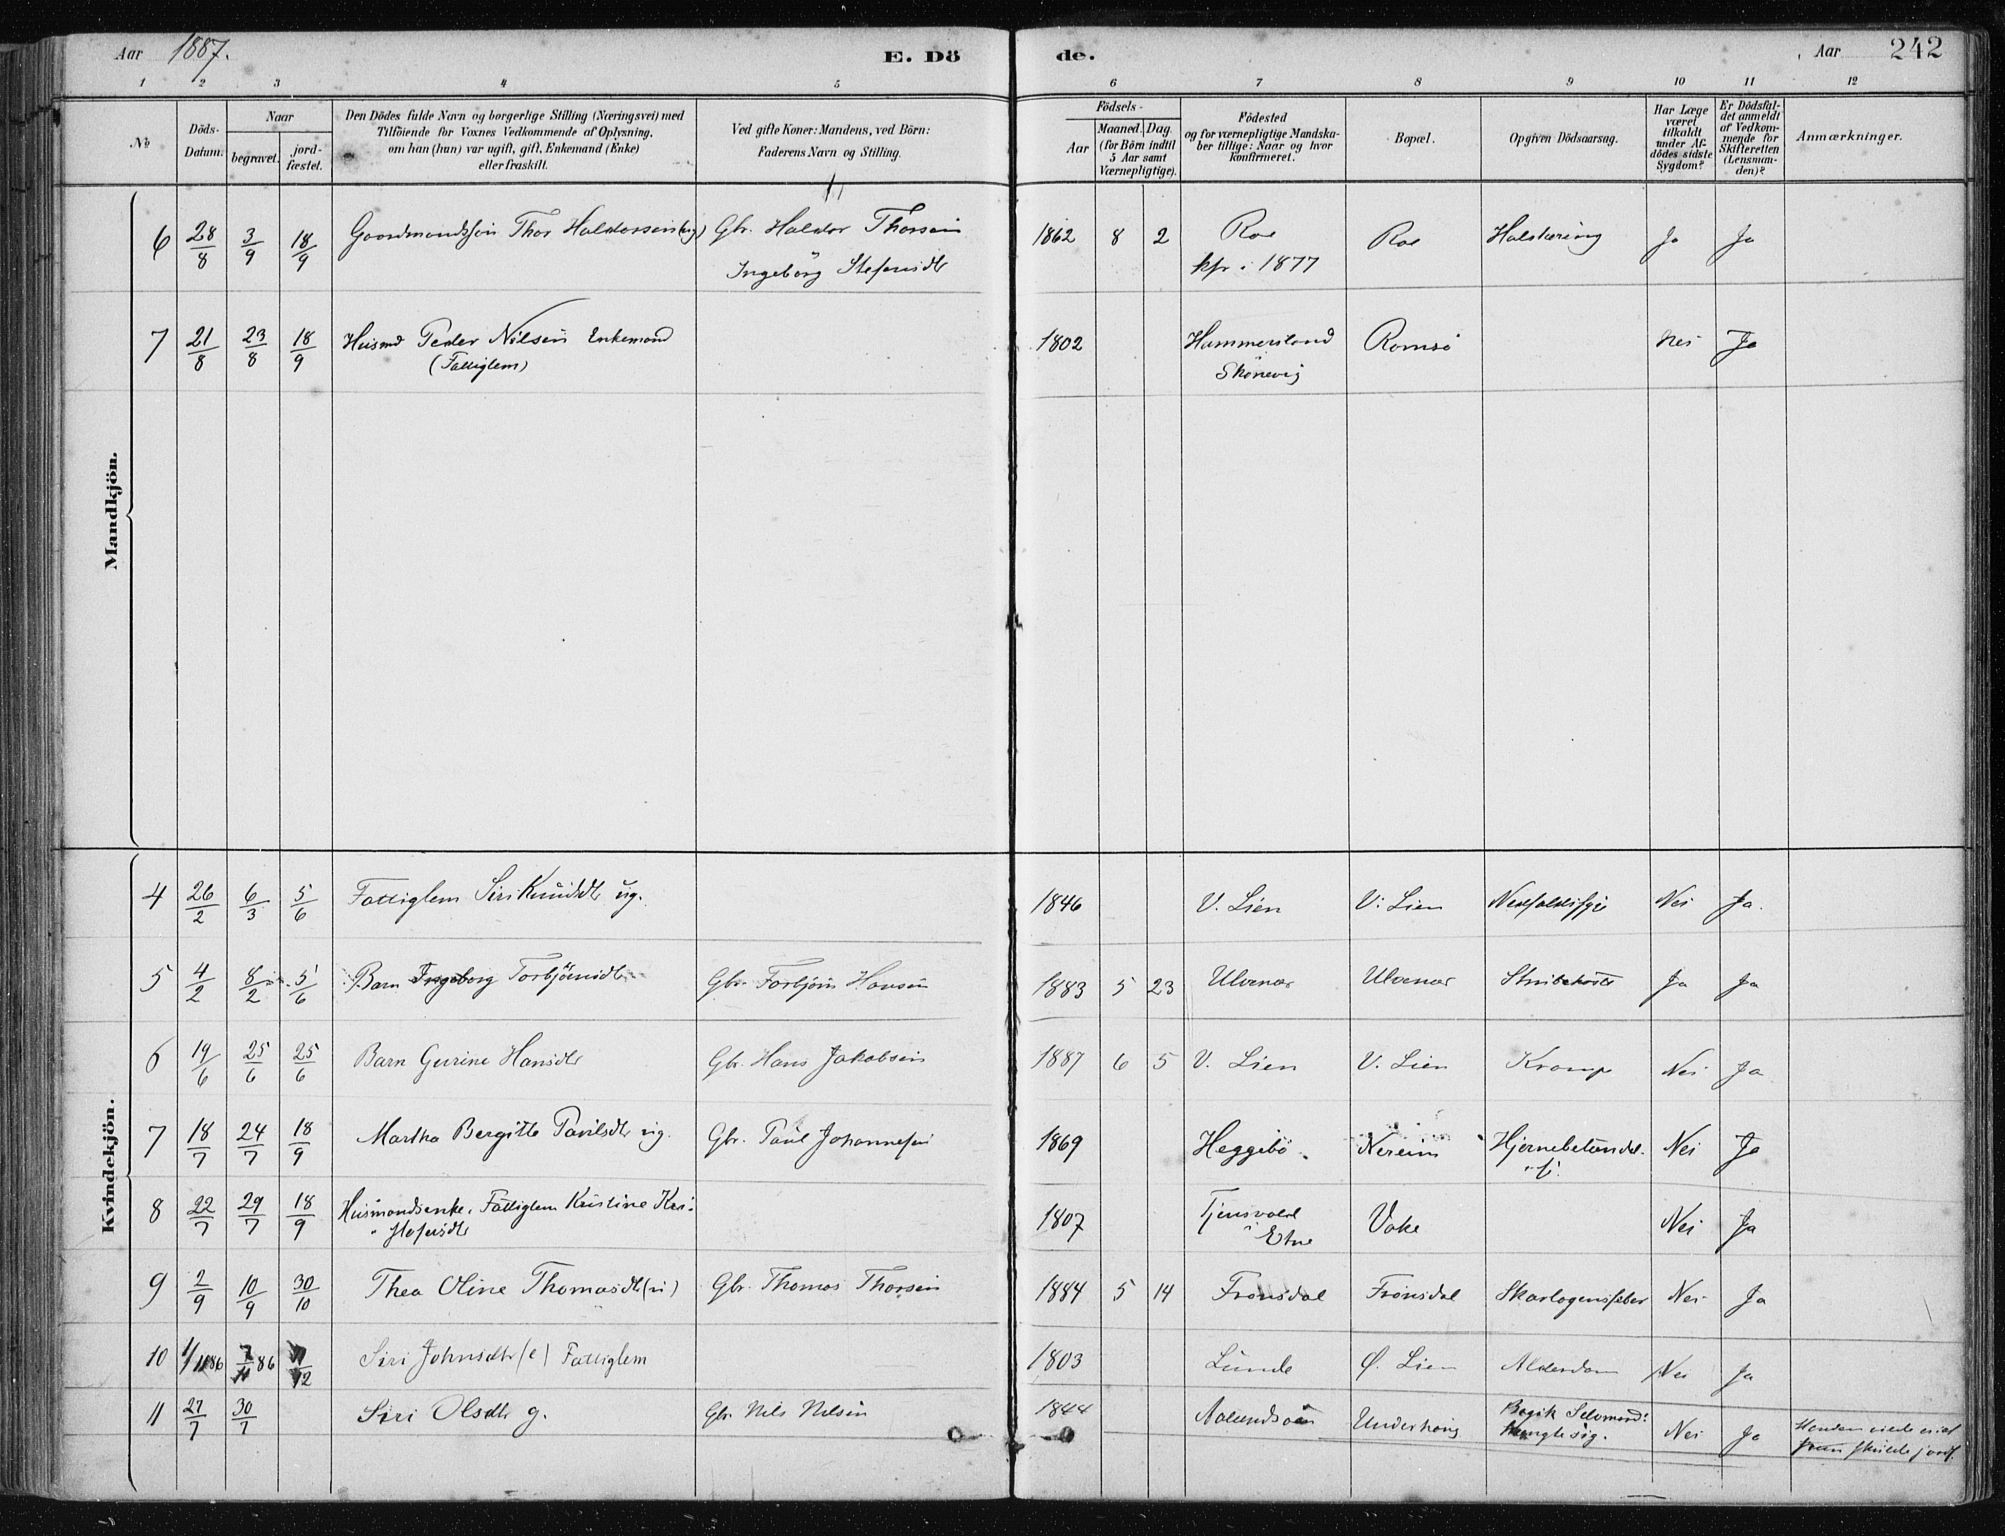 Aar 1887. E. Dö de. Aar 242
1 2 3 4 5 6 7 8 9 10 11 12
No
Döds-Datum.
Naar
begravet.
jordfæstet.
Den Dödes fulde Navn og borgerlige Stilling (Næringsvei) med
Tilföiende for Voxnes Vedkommende af Oplysning,
om han (hun) var ugift, gift, Enkemand (Enke)
eller fraskilt.
Ved gifte Koner: Mandens, ved Börn:
Faderens Navn og Stilling.
Födsels-
Aar
Maaned. Dag.
(for Börn indtil
5 Aar samt
Værnepligtige).
Födested
og for værnepligtige Mandskaber tillige: Naar og hvor
konfirmeret.
Bopæl.
Opgiven Dödsaarsag.
Har Læge
været
tilkaldt
under Afdödes sidste
Sygdom?
Er Dödsfaldet anmeldt
af Vedkommende for
Skifteretten
(Lensmanden)?
Anmærkninger.
Mandkjön.
6 28/8 3/9 18/9 Thor Haldorsen (ug) Gbr. Haldor Thorsen 1862 8 2 Roe Roe Ja Ja
Ingeborg Stefensdtr kfr i 1877
7 21/8 23/8 18/9 Husmd Peder Nilsen Enkemand 1802 Hammersland Romsö Nei Ja
(Fattiglem) Skönevig
Kvindekjön.
4 26/2 6/3 5/6 Fattiglem Siri Knudsdtr ug. 1846 V. Lien V. Lien Nei Ja.
5 4/2 8/2 5/6 Barn Ingeborg Torbjörnsdtr Gbr. Torbjörn Hansen 1883 5 23 Ulvenæs Ulvenæs Strubehoste Ja Ja
6 19/6 25/6 25/6 Barn Gurine Hansdtr Gbr. Hans Jakobsen 1887 6 5 V. Lien V. Lien Krampe Nei Ja
7 18/7 24/7 18/9 Martha Bergitte Paulsdtr ug. Gbr. Paul Johannesen 1869 Heggebö Nereim Hjernebetændel- Nei Ja
8 22/7 29/7 18/9 Husmandsenke, Fattiglem Kristine Kri- 1807 Tjensvold Vake Nei Ja
stofersdtr Etne
9 2/9 10/9 30/10 Thea Oline Thomasdtr Gbr. Thomas Thorsen 1884 5 14 Frönsdal Frönsdal Skarlagensfeber Nei Ja
10 1/11 86 7/11 86 /12 Siri Johnsdtr (e) Fattiglem 1803 Lunde Ö. Lien Alderdom Nei Ja
11 27/7 30/7 Siri Olsdtr g. Gbr. Nils Nilsen 1844 Underhaug Nei Ja